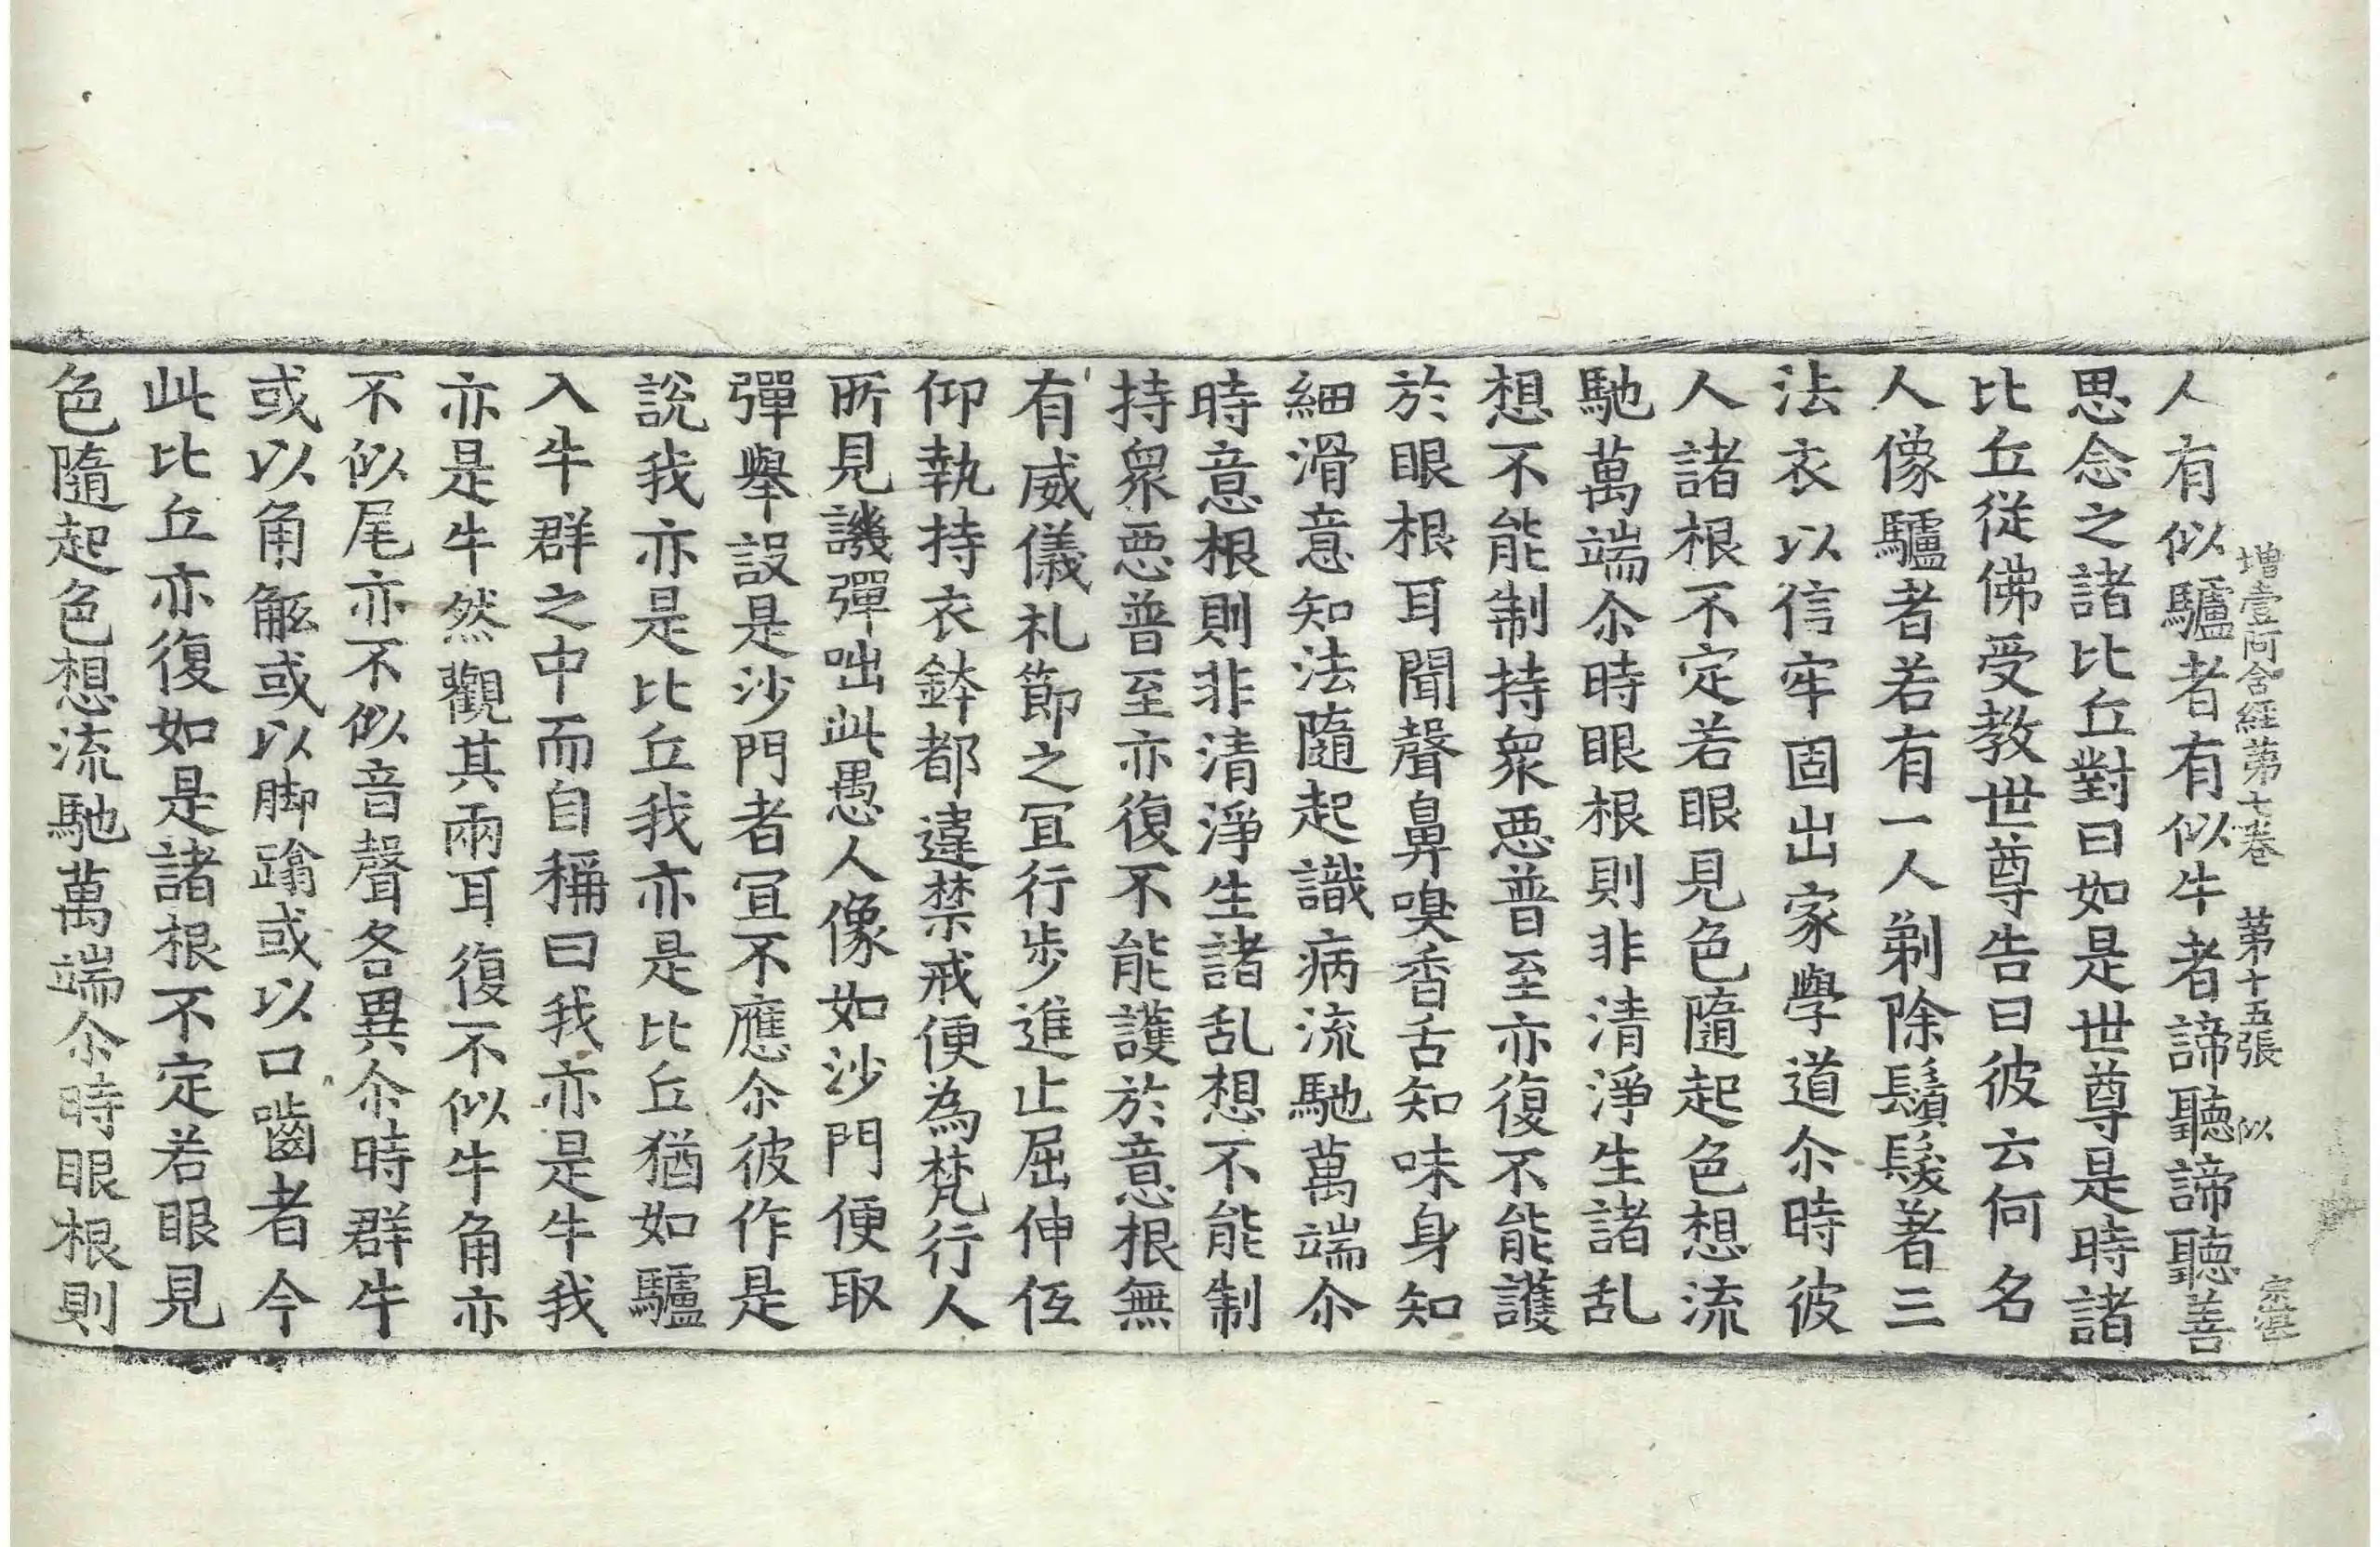 增壹阿含経第七巻 第十五張 似
人有似驢者有似牛者諦聽諦聽善
思念之諸比丘對曰如是世尊是時諸
比丘從佛受教世尊告曰彼云何名
人像驢者若有一人剃除鬚髮著三
法衣以信牢固出家學道尒時彼
人諸根不定若眼見色隨起色想流
馳萬端尒時眼根則非清淨生諸乱
想不能制持衆惡普至亦復不能護
於眼根耳聞聲鼻嗅香舌知味身知
細滑意知法隨起識病流馳萬端尒
時意根則非清淨生諸乱想不能制
持衆惡普至亦復不能護於意根無
有威儀礼節之冝行步進止屈伸伍
仰執持衣鉢都違禁戒便為梵行人
所見譏彈咄此愚人像如沙門便取
彈舉設是沙門者冝不應尒彼作是
說我亦是比丘我亦是比丘猶如驢
入牛群之中而自稱曰我亦是牛我
亦是牛然觀其兩耳復不似牛角亦
不似尾亦不似音聲各異尒時群牛
或以角觝或以脚蹹或以口嚙者今
此比丘亦復如是諸根不定若眼見
色隨起色想流馳萬端尒時眼根則